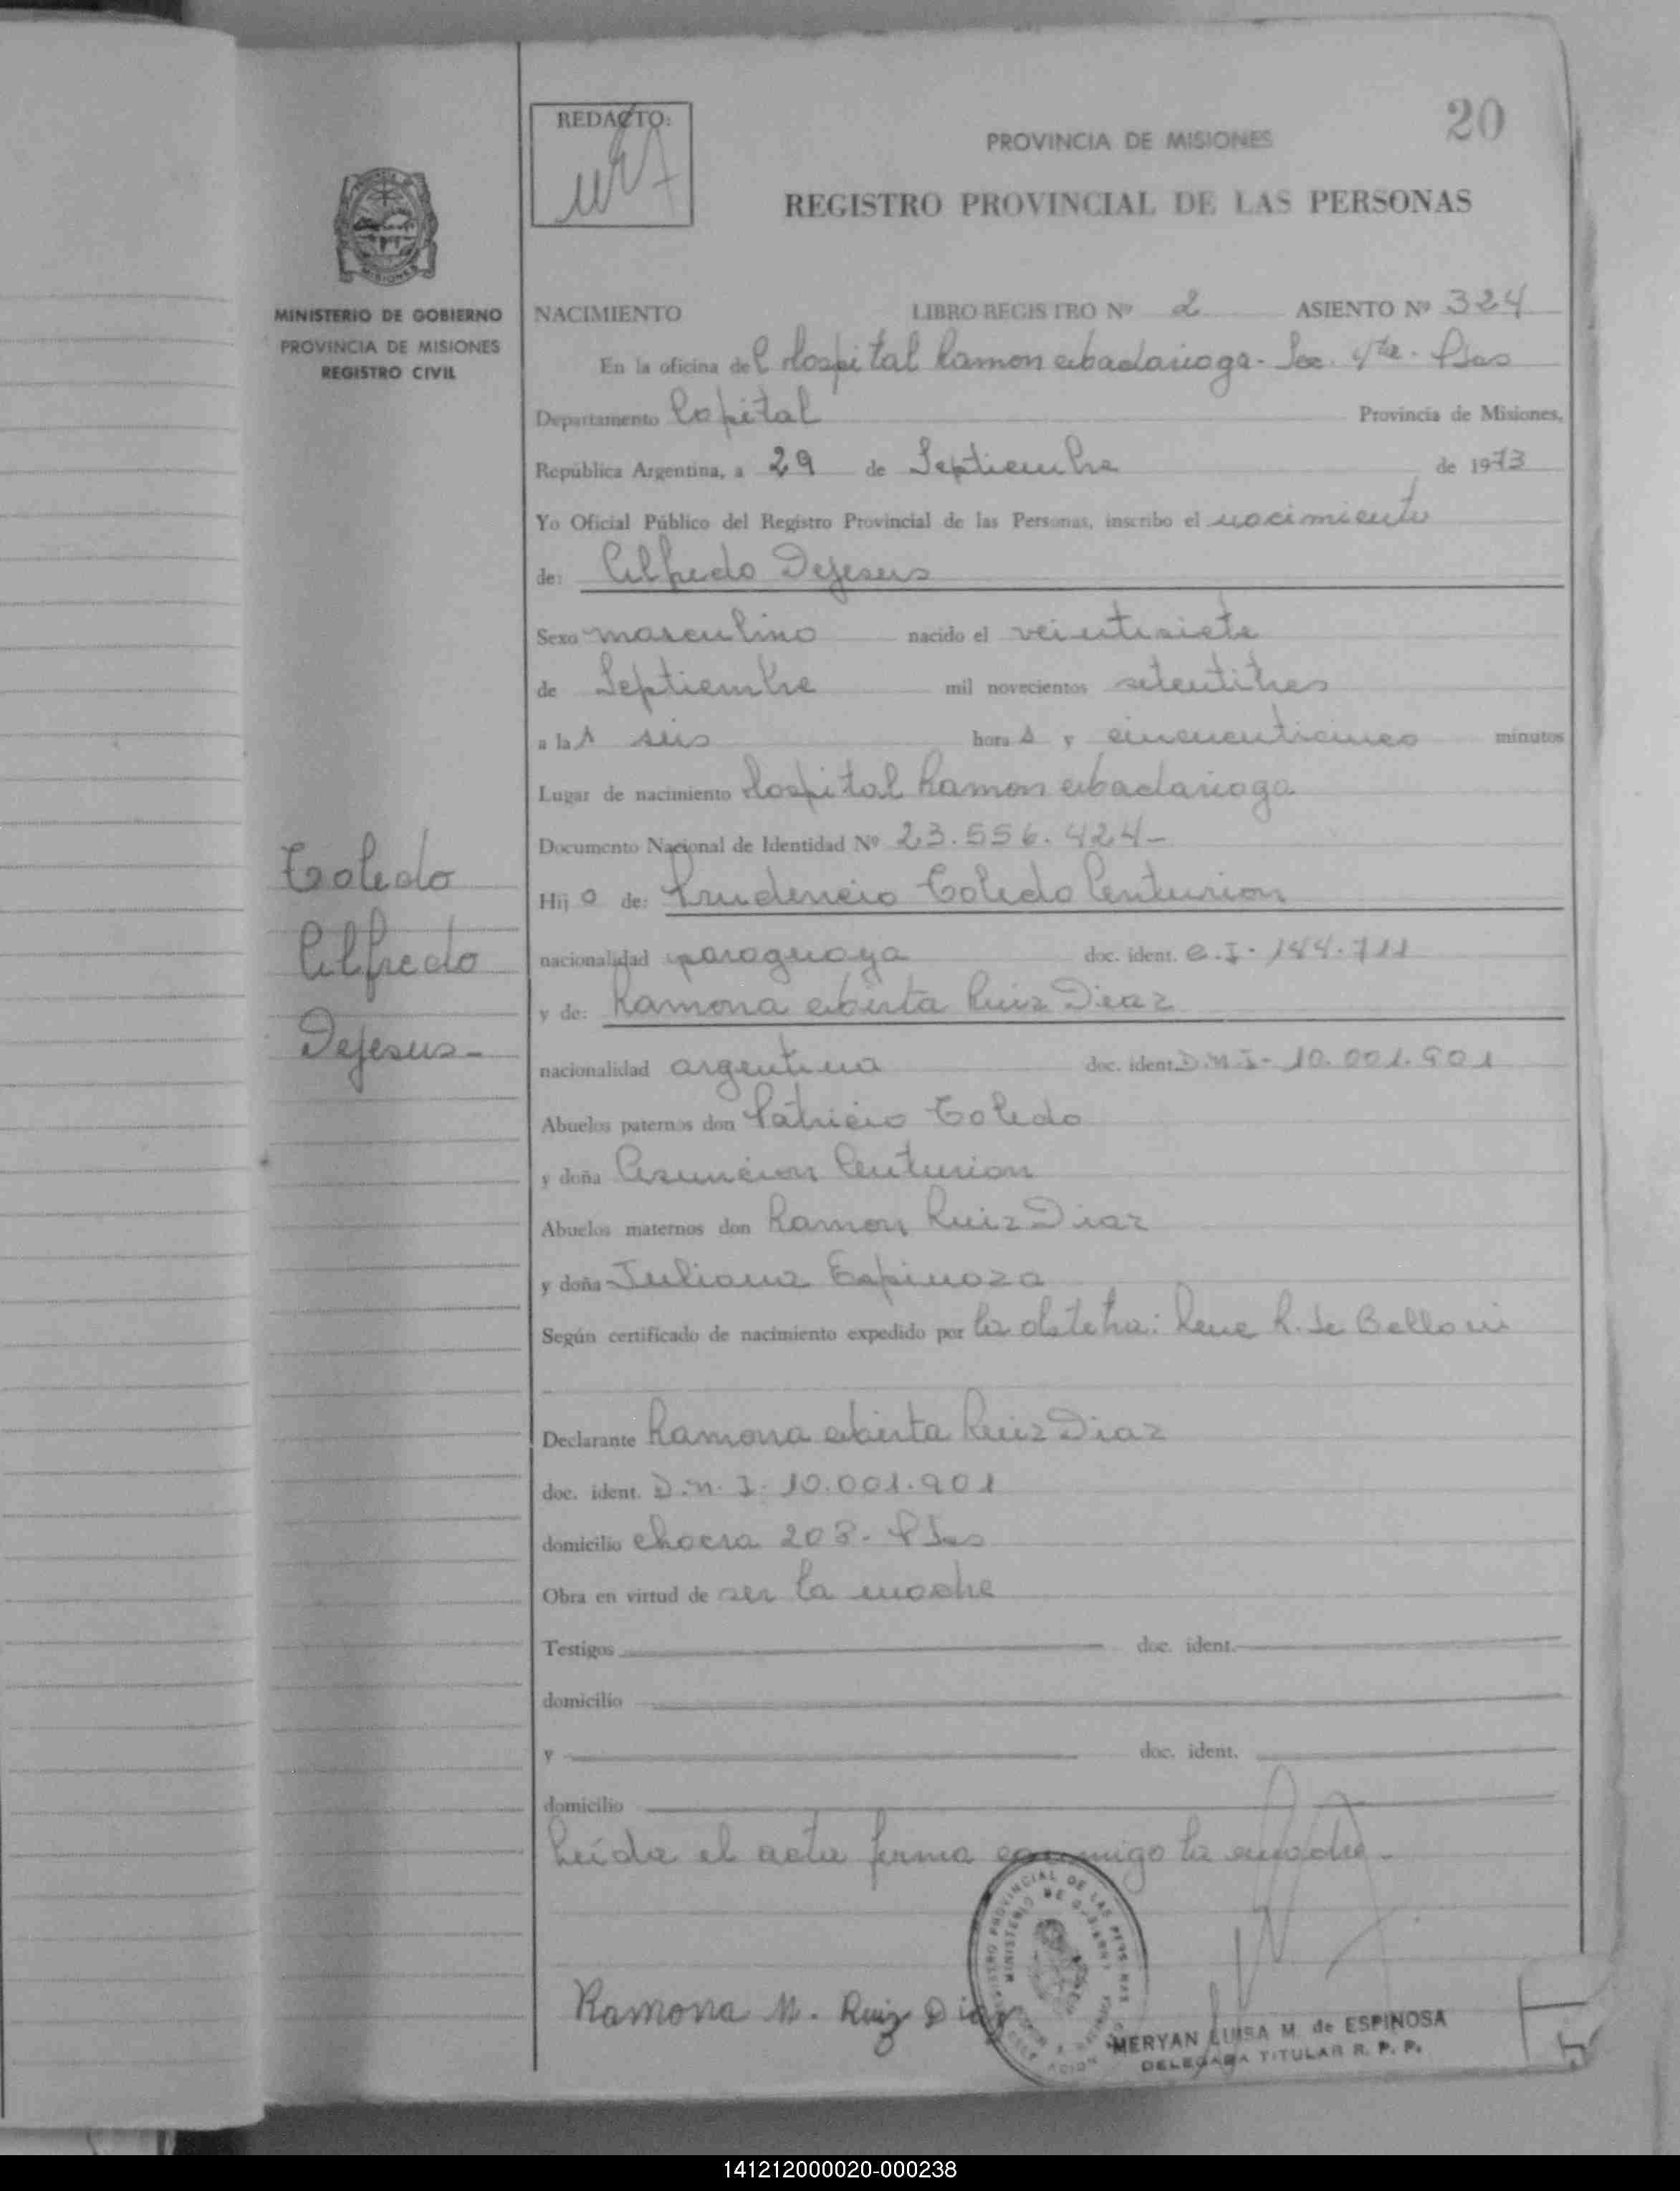 20
REDACTO:
PROVINCIA DE MISIONES
REGISTRO PROVINCIAL DE LAS PERSONAS
MISIONES
MINISTERIO DE GOBIERNO
PROVINCIA DE MISIONES
REGISTRO CIVIL
NACIMIENTO LIBRO REGISTRO Nº 2 ASIENTO Nº 324
En la oficina del Hospital Ramon Madariaga - Sec. 4ta. - Pdas
Departamento Capital Provincia de Misiones,
República Argentina, a 29 de Septiembre de 1973
Yo Oficial Público del Registro Provincial de las Personas, inscribo el nacimiento
de: Alfredo Dejesus
Sexo masculino nacido el veintisiete
de Septiembre mil novecientos setentitres
a las seis horas y cincuenticinco minutos
Lugar de nacimiento Hospital Ramon Madariaga
Documento Nacional de Identidad Nº 23.556.424-
Toledo
Alfredo
Dejesus-
Hijo de: Prudencio Toledo Centurion
nacionalidad paraguaya doc. ident. C.I- 144.711
y de: Ramona Ruiz Diaz
nacionalidad argentina doc. ident. D.N.I- 10.001.901
Abuelos paternos don Patricio Toledo
y doña Asuncion Centurion
Abuelos maternos don Ramon Ruiz Diaz
y doña Juliana Espinoza
Según certificado de nacimiento expedido por la obstetra: Rene R. de Belloni
Declarante Ramona Ruiz Diaz
doc. ident. D.N.I- 10.001.901
domicilio chacra 203- Pdas
Obra en virtud de ser la madre
Testigos doc. ident.
domicilio
y doc. ident.
domicilio
Leída el acta firma conmigo la madre.-
Ramona M. Ruiz Diaz
MERYAN LUISA M. de ESPINOSA
DELEGADA TITULAR R. P. P.
141212000020-000238